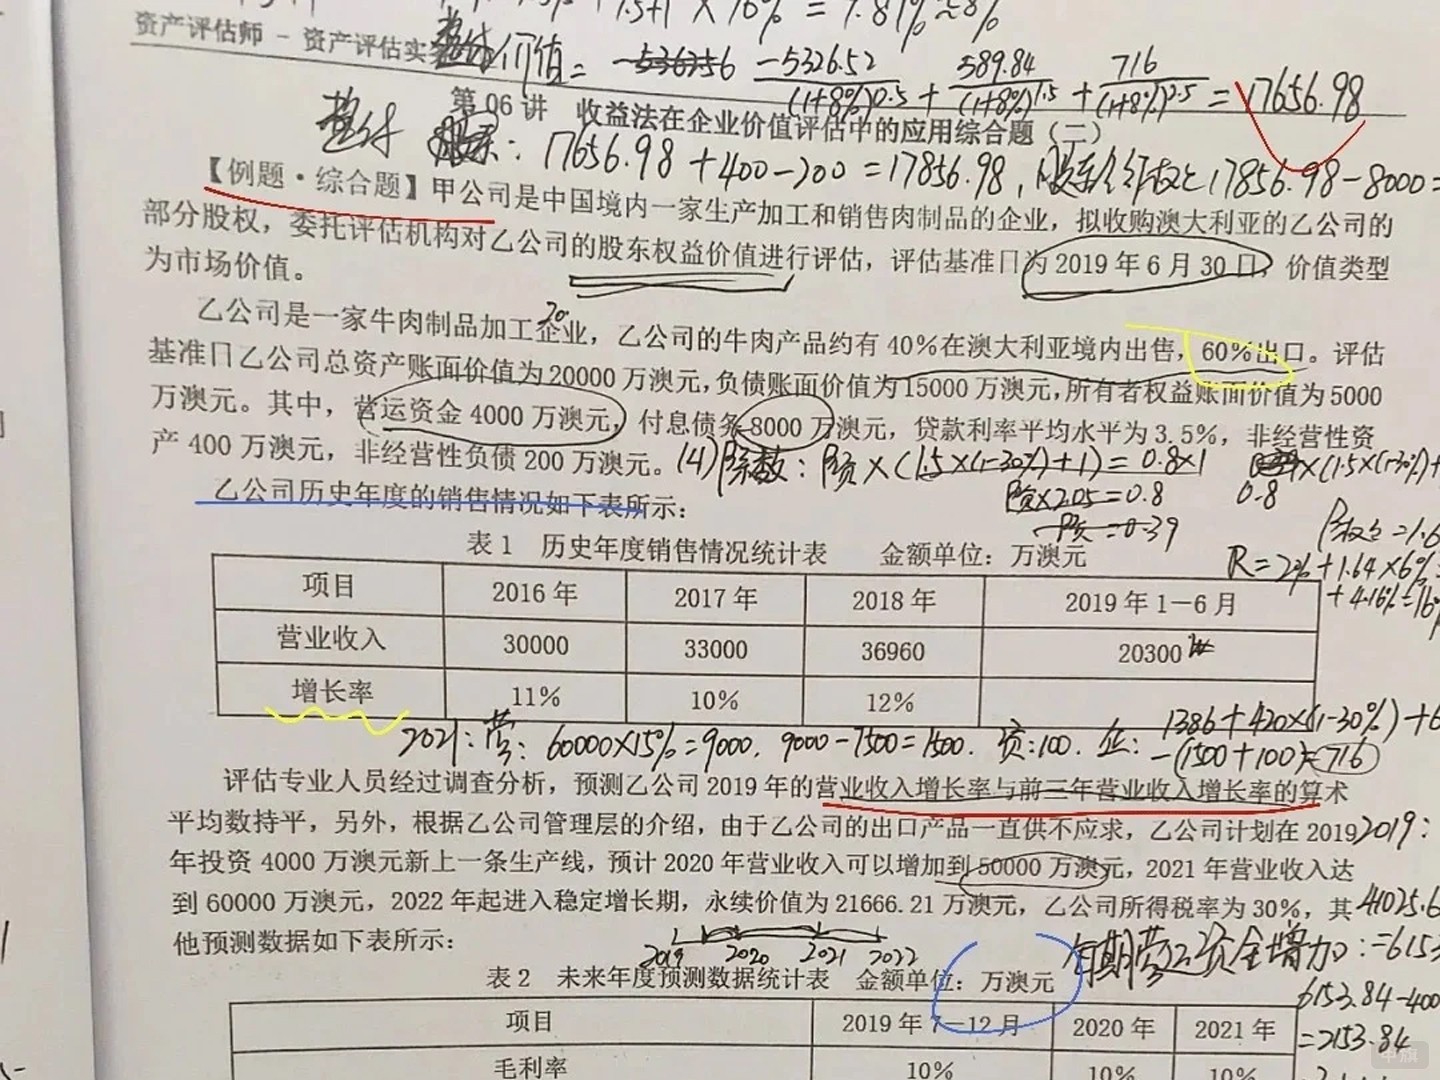 资产评估师 - 资产评估实
价值= -5326.52/(1+8%)^0.5 + 589.84/(1+8%)^1.5 + 716/(1+8%)^2.5 = 17656.98
第 06 讲 收益法在企业价值评估中的应用综合题（二）
17656.98+400-200=17856.98, 17856.98-8000=
【例题·综合题】甲公司是中国境内一家生产加工和销售肉制品的企业，拟收购澳大利亚的乙公司的
部分股权，委托评估机构对乙公司的股东权益价值进行评估，评估基准日为 2019 年 6 月 30 日，价值类型
为市场价值。
乙公司是一家牛肉制品加工企业，乙公司的牛肉产品约有 40%在澳大利亚境内出售，60%出口。评估
基准日乙公司总资产账面价值为 20000 万澳元，负债账面价值为 15000 万澳元，所有者权益账面价值为 5000
万澳元。其中，营运资金 4000 万澳元，付息债务 8000 万澳元，贷款利率平均水平为 3.5%，非经营性资
产 400 万澳元，非经营性负债 200 万澳元。
(4) β系数: β资×(1.5×(1-30%)+1)=0.8×1
β资×2.05=0.8
0.8
=0.39
乙公司历史年度的销售情况如下表所示：
R=2%+1.64×6%
+4.16%=16
表 1 历史年度销售情况统计表 金额单位：万澳元
项目 2016 年 2017 年 2018 年 2019 年 1－6 月
营业收入 30000 33000 36960 20300
增长率 11% 10% 12%
2021: 营: 60000×15%=9000. 9000-7500=1500. 资:100. 企: 1386+420×(1-30%)+6
-(1500+100)=716
评估专业人员经过调查分析，预测乙公司 2019 年的营业收入增长率与前三年营业收入增长率的算术
平均数持平，另外，根据乙公司管理层的介绍，由于乙公司的出口产品一直供不应求，乙公司计划在 2019
2019:
年投资 4000 万澳元新上一条生产线，预计 2020 年营业收入可以增加到 50000 万澳元，2021 年营业收入达
到 60000 万澳元，2022 年起进入稳定增长期，永续价值为 21666.21 万澳元，乙公司所得税率为 30%，其
41025.6
他预测数据如下表所示：
2019 2020 2021 2022
每期营运资金增加:=6153
表 2 未来年度预测数据统计表 金额单位：万澳元
6153.84-400
=2153.84
项目 2019 年 7－12 月 2020 年 2021 年
毛利率 10% 10% 10%